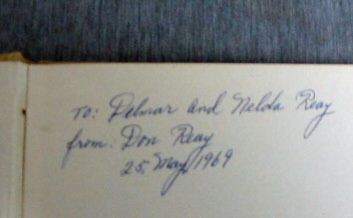 To: Delmar and Nelda Reay
from: Don Reay
25, May, 1969